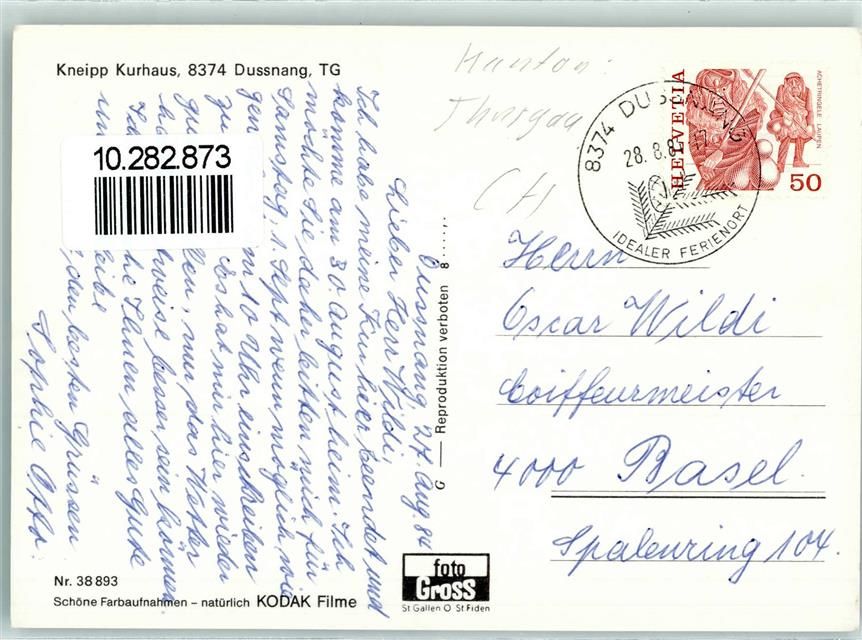 Kneipp Kurhaus, 8374 Dussnang, TG
Kanton:
Thurgau
CH
HELVETIA
ACHETRINGELE LAUPEN
50
8374 DUSSNANG
28.8.8
IDEALER FERIENORT
10.282.873
Dussnang, 27. Aug. 84
Lieber Herr Wildi,
Ich habe meine Kur hier beendet und
komme am 30. August heim. Ich
möchte Sie daher bitten mich für
Samstag, 1. Sept wenn möglich, wie
gen 10 Uhr einschreiben
zu Es hat mir hier wieder
gu len, nur das Wetter
ha tweise besser sein können
Ich he Ihnen alles Gute
und eibe
den besten Grüssen
Sophie Otto.
G — Reproduktion verboten 8
Herrn
Oscar Wildi
Coiffeurmeister
4000 Basel.
Spalenring 104.
Nr. 38 893
Schöne Farbaufnahmen – natürlich KODAK Filme
foto
Gross
St Gallen O St Fiden